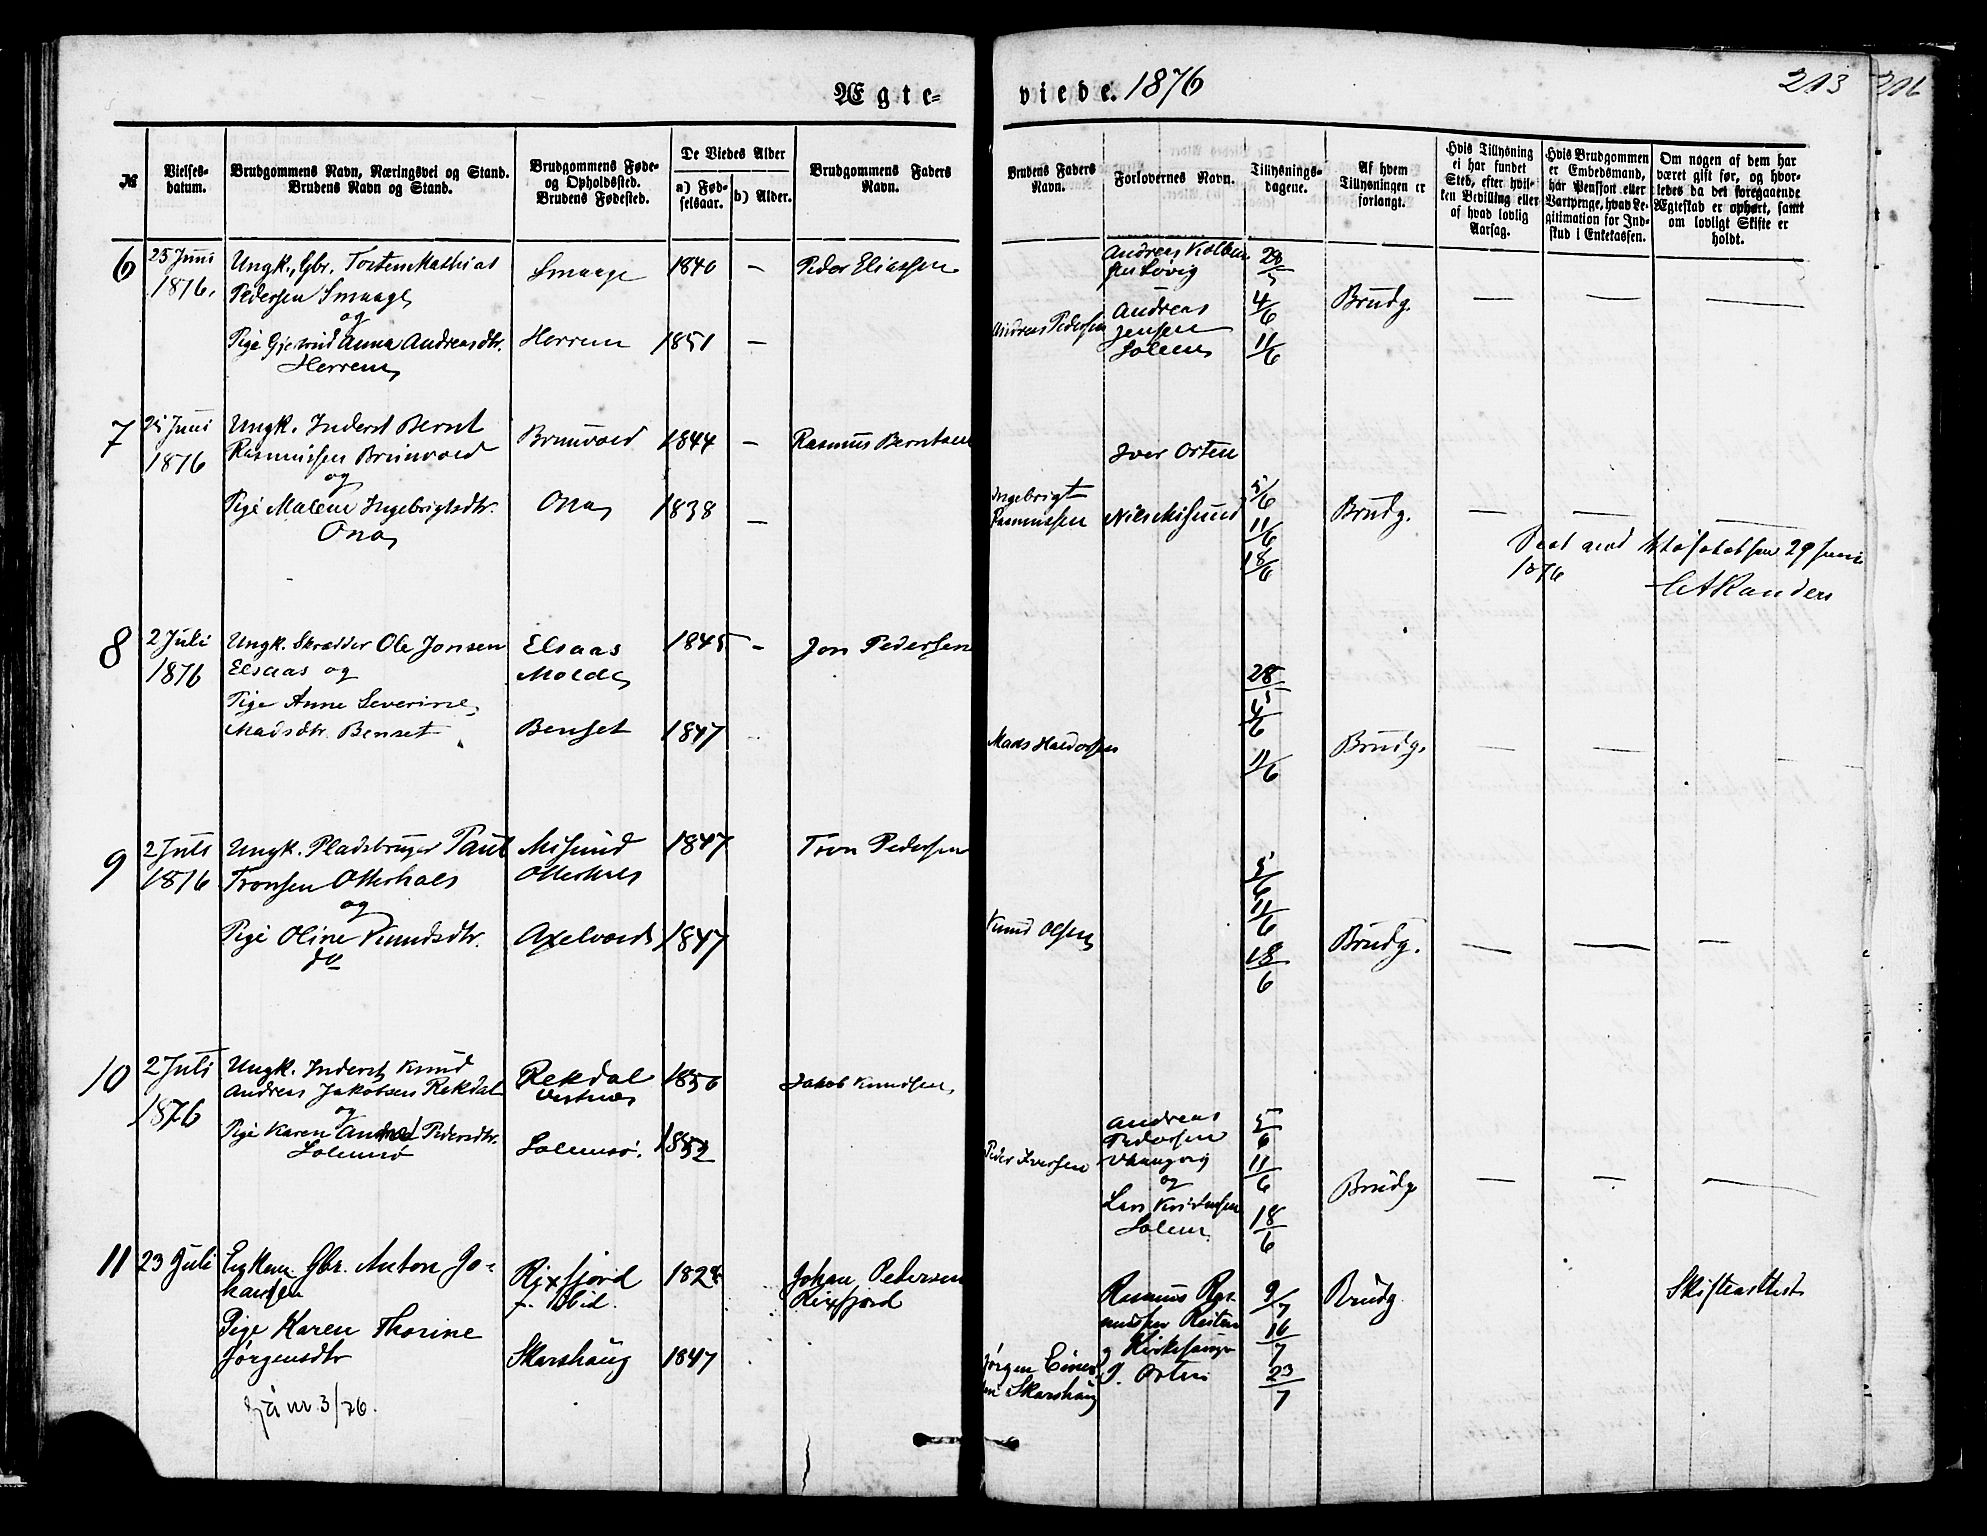 Ægte-
viede. 1876
213
216
№
Vielses-
datum.
Brudgommens Navn, Næringsvei og Stand.
Brudens Navn og Stand.
Brudgommens Føde-
og Opholdssted.
Brudens Fødested.
De Viedes Alder
a) Fød-
selsaar.
b) Alder.
Brudgommens Faders
Navn.
Brudens Faders
Navn.
Forlovernes Navn.
Tillysnings-
dagene.
Af hvem
Tillysningen er
forlangt.
Hvis Tillysning
ei har fundet
Sted, efter hvil-
ken Bevilling eller
af hvad lovlig
Aarsag.
Hvis Brudgommen
er Embedsmand,
har Pension eller
Vartpenge, hvad Le-
gitimation for Ind-
skud i Enkekassen.
Om nogen af dem har
været gift før, og hvor-
ledes da det foregaaende
Ægteskab er ophørt, samt
om lovligt Skifte er
holdt.
6
25 Juni
1876.
Ungk., Gbr. Torsten Mathias
Pedersen Smaage
og
Pige Gjertrud Anna Andreasdtr.
Herrem
Smaage
Herrem
1840 —
1851 —
Peder Eliassen
Andreas Pedersen
Andreas
Jensen
Solem
28/5
4/6
11/6
Brudg.
— — —
7
25 Juni
1876
Ungk. Inderst Bernt
Rasmussen Brunvold
og
Pige Malene Ingebrigtsdtr.
Ona
Brunvold
Ona
1844 —
1838 —
Rasmus Berntsen
Ingebrigt
Rasmussen
Iver Orten
Nils Misund
5/6
11/6
18/6
Brudg.
— — —
29 Juni
1876
8
2 Juli
1876
Ungk. Skrædder Ole Jonsen
Elsaas og
Pige Anne Severine
Madsdtr. Benset
Elsaas
Molde
Benset
1845 —
1847
Jon Pedersen
Mads Haldorsen
28/5
4/6
11/6
Brudg.
— — —
9
2 Juli
1876
Ungk. Pladsbruger Paul
Tronsen Otterhals
og
Pige Oline Knudsdtr.
do
Misund
Otterhals
Axelvold
1847
1847
Tron Pedersen
Knud Olsen
5/6
11/6
18/6
Brudg.
— — —
10
2 Juli
1876
Ungk. Inderst Knud
Andreas Jakobsen Rekdal
og
Pige Karen Pedersdtr.
Solemsø
Rekdal
Vestnes
Solemsø.
1850
1852
Jakob Knudsen
Peder Iversen
Andreas
Pedersen
og
Lars Kristensen
Solem
5/6
11/6
18/6
Brudg.
— — —
11
23 Juli
Enkem. Gbr. Anton Jo-
hansen
Pige Karen Thorine
Jørgensdtr
Rixfjord
f. ibid.
Skarshaug
1828
1847
Johan Pedersen
Rixfjord
Jørgen Einer-
sen Skarshaug
Rasmus
Kirkesanger
J. Orten
9/7
16/7
23/7
Brudg
Skifteattest
nr. 3/76.